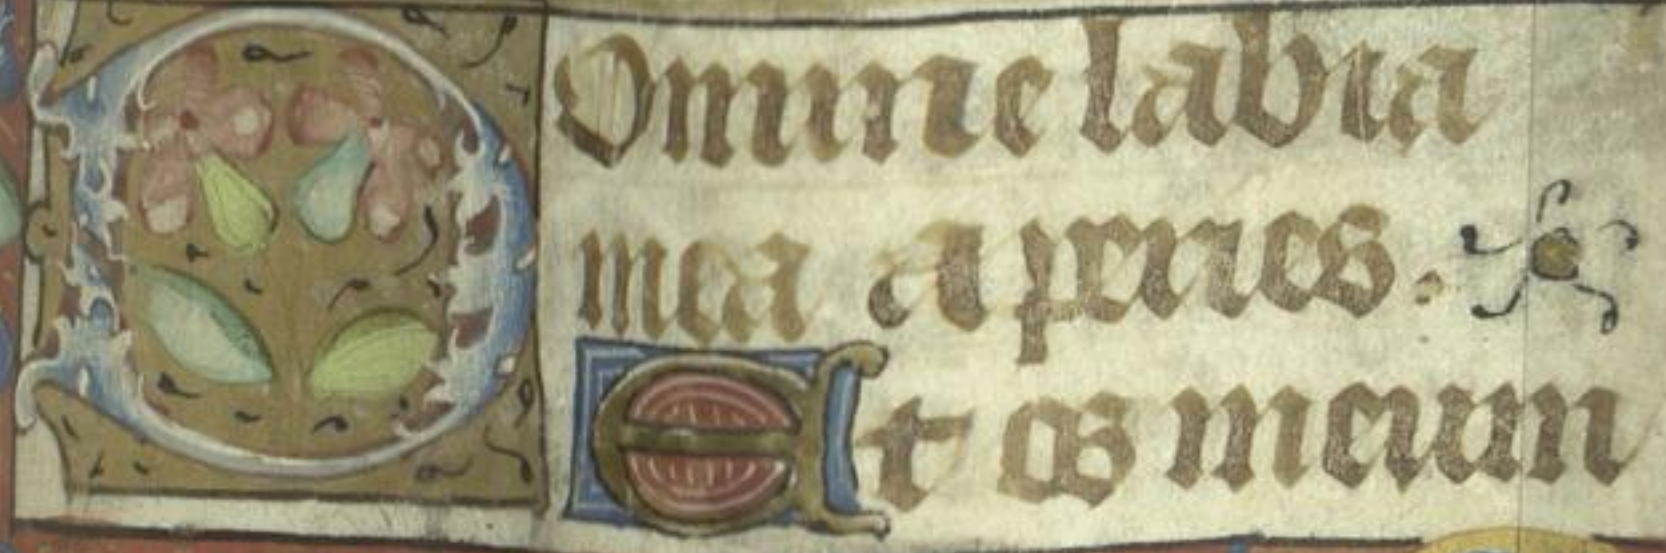 DOmine labia
mea aperies.
Et os meum